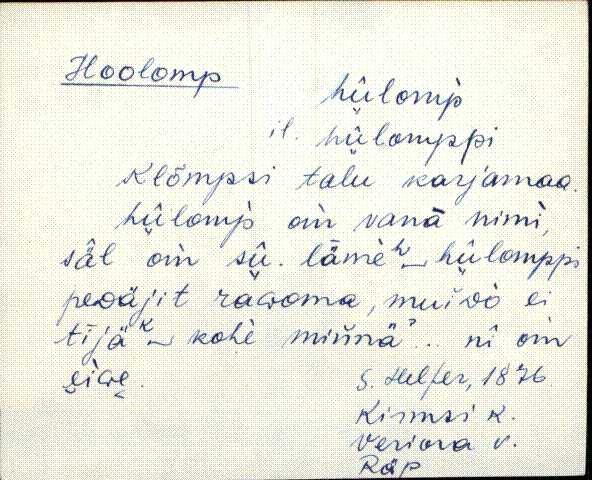 Hoolomp
hûlomp̀
il. hûlomppi
Klõmpsi talu karjamaa.
hûlomp̀ oìn vanā nimì,
säl oìn sû. lämèʰ hûlomppi
pedäjit raɢoma, muìdò ei
tījäᴷ kohè minnäˀ.. nî oìn
S. Helfer, 1876
Kirmsi k.
Veriora v.
Räp